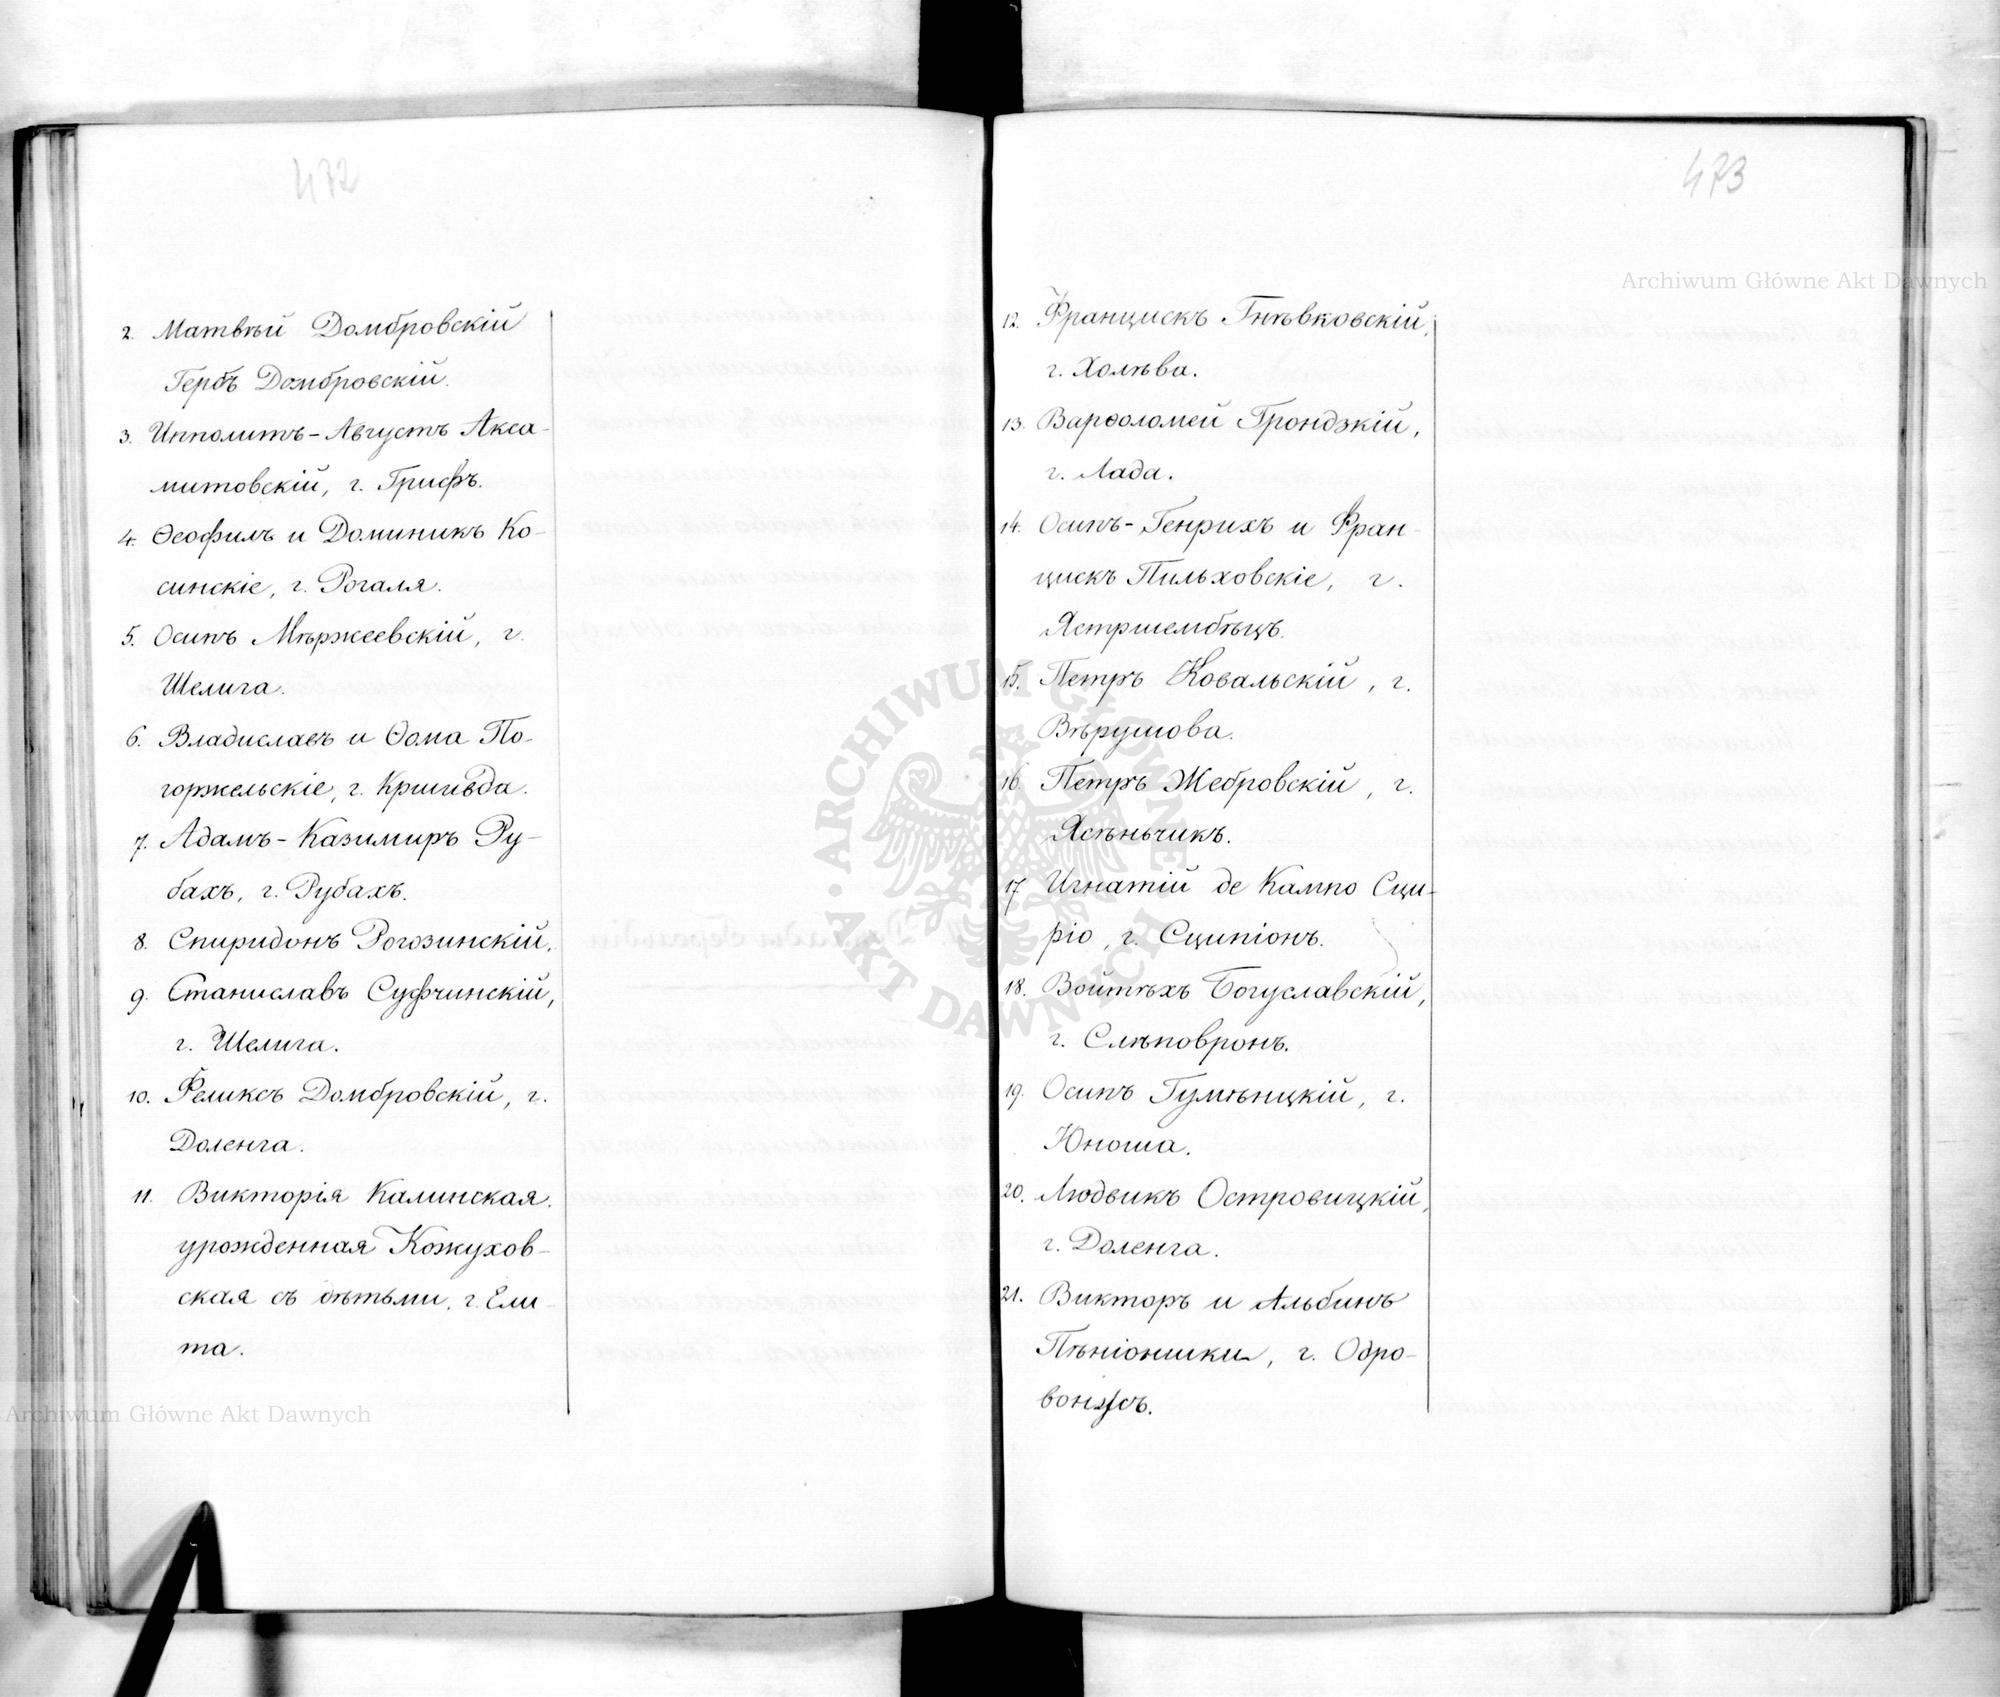 472
2. Матвѣй Домбровскій
Гербъ Домбровскій.
3. Ипполитъ-Августъ Акса-
митовскій, г. Грифъ.
4. Ѳеофилъ и Доминикъ Ко-
синскіе, г. Рогаля.
5. Осипъ Мѣржеевскій, г.
Шелига.
6. Владиславъ и Ѳома По-
горжельскіе, г. Кришвда.
7. Адамъ-Казимиръ Ру-
бахъ, г. Рубахъ.
8. Спиридонъ Рогозинскій.
9. Станиславъ Суфчинскій,
г. Шелига.
10. Феликсъ Домбровскій, г.
Доленга.
11. Викторія Калинская
урожденная Кожухов-
ская съ дѣтьми, г. Ели-
та.
473
Archiwum Główne Akt Dawnych
12. Францискъ Гнѣвковскій,
г. Холѣва.
13. Варѳоломей Грондзкій,
г. Лада.
14. Осипъ-Генрихъ и Фран-
цискъ Пильховскіе, г.
Ястршембѣцъ.
15. Петръ Ковальскій, г.
Вѣрушова.
16. Петръ Жебровскій, г.
Ясѣньчикъ.
17 Игнатій де Кампо Сци-
ріо, г. Сципіонъ.
18. Войтѣхъ Богуславскій,
г. Слѣповронъ.
19. Осипъ Гумѣницкій, г.
Юноша.
20. Людвикъ Островицкій,
г. Доленга.
21. Викторъ и Альбинъ
Пѣніоншки, г. Одро-
вонжъ.
ARCHIWUM GŁÓWNE AKT DAWNYCH
Archiwum Główne Akt Dawnych